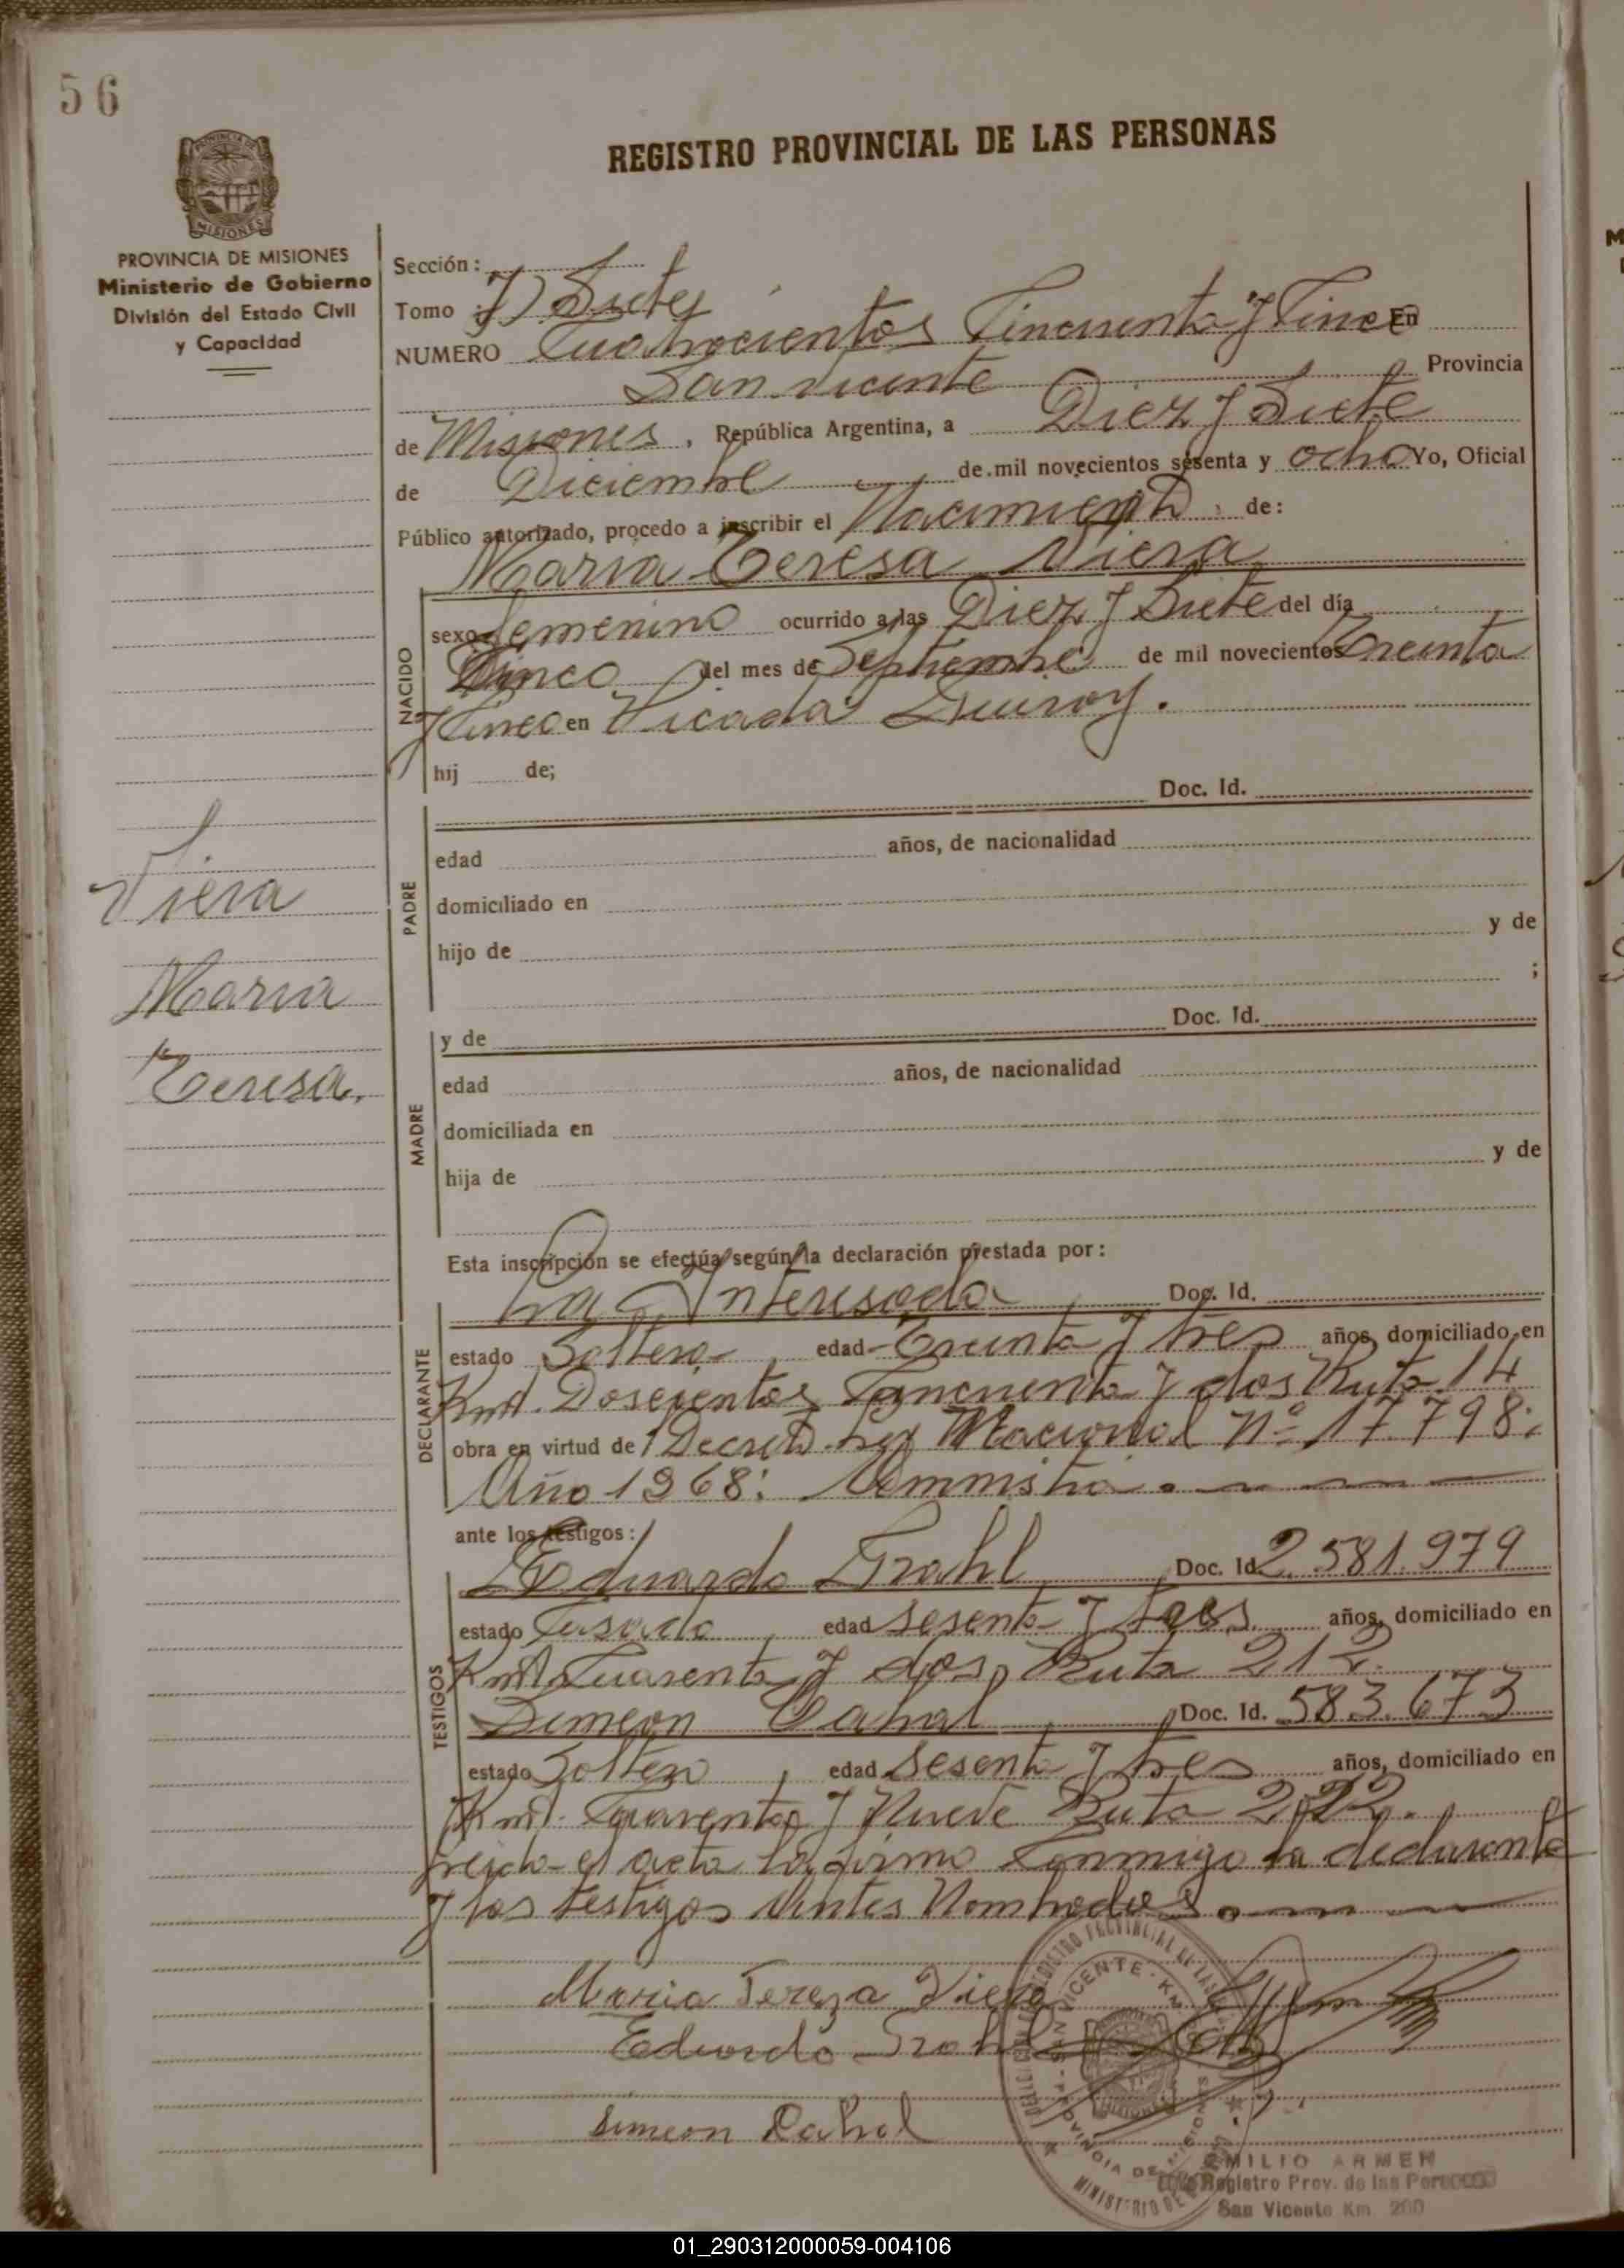 56
REGISTRO PROVINCIAL DE LAS PERSONAS
PROVINCIA DE MISIONES
MISIONES
PROVINCIA DE MISIONES
Ministerio de Gobierno
División del Estado Civil
y Capacidad
Viera
Maria
Teresa.
Sección:
Tomo 7) Siete
NUMERO Cuatrocientos Cincuenta y Cinco En
San Vicente Provincia
de Misiones, República Argentina, a Diez y Siete
de Diciembre de mil novecientos sesenta y ocho Yo, Oficial
Público autorizado, procedo a inscribir el Nacimiento de:
Maria Teresa Viera
NACIDO
sexo femenino ocurrido a las Diez y Siete del día
Cinco del mes de Septiembre de mil novecientos Treinta
y Cinco en Picada
hij de;
PADRE
Doc. Id.
edad años, de nacionalidad
domiciliado en
hijo de y de
;
MADRE
y de Doc. Id.
edad años, de nacionalidad
domiciliada en
hija de y de
Esta inscripción se efectúa según la declaración prestada por:
DECLARANTE
La Interesada Doc. Id.
estado Soltera edad Treinta y tres años, domiciliado en
Km. Doscientos Cincuenta y dos Ruta 14
obra en virtud de Decreto Ley Nacional Nº 17.798:
Año 1968: Amnistia.
ante los testigos:
TESTIGOS
Eduardo Grahl Doc. Id. 2.581.979
estado Casado edad Sesenta y tres años, domiciliado en
Km. Cuarenta y dos, Ruta 212.
Simeon Cabral Doc. Id. 583.673
estado Soltero edad Sesenta y tres años, domiciliado en
Km. Cuarenta y Nueve Ruta 212.
el acta la firma Conmigo la declarante
y los testigos Antes Nombrados.
Maria Tereza Viera
Eduardo Grahl
Simeon Cabral
REGISTRO PROVINCIAL DE LAS
SAN VICENTE - KM
PROVINCIA DE MISIONES
MINISTERIO DE
EMILIO ARMEN
Registro Prov. de las Personas
San Vicente Km. 200
01_290312000059-004106